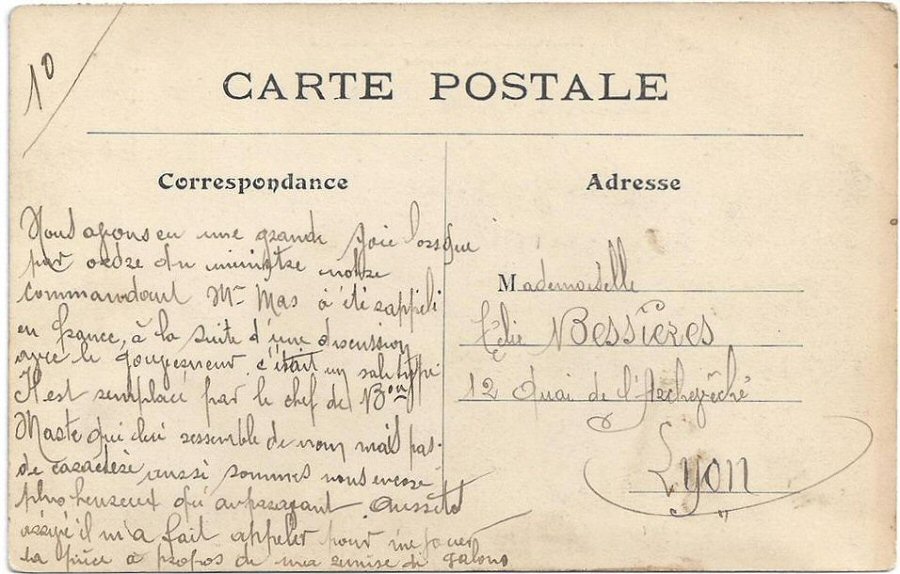 10
CARTE POSTALE
Correspondance
Nous avons eu une grande joie lorsque
par ordre du ministre notre
commandant Mr Mas à été rappelé
en france, à la suite d'une discussion
avec le gouverneur. c'était un sale type
Il est remplacé par le chef de Bon
Maste qui lui ressemble de nom mais pas
de caractère aussi sommes nous encore
plus heureux qu'auparavant. Aussitôt
arrivé il m'a fait appeler pour me
la puce a propos de ma remise de galons
Adresse
Mademoiselle
Bessières
12 Quai de l'Archevêché
Lyon